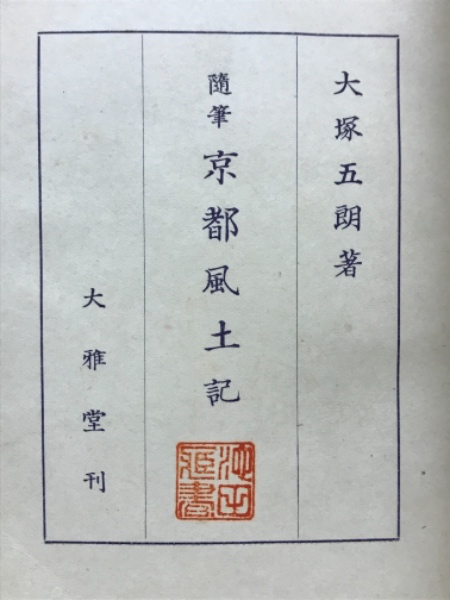 大塚五朗著
隨筆 京都風土記
大雅堂刊